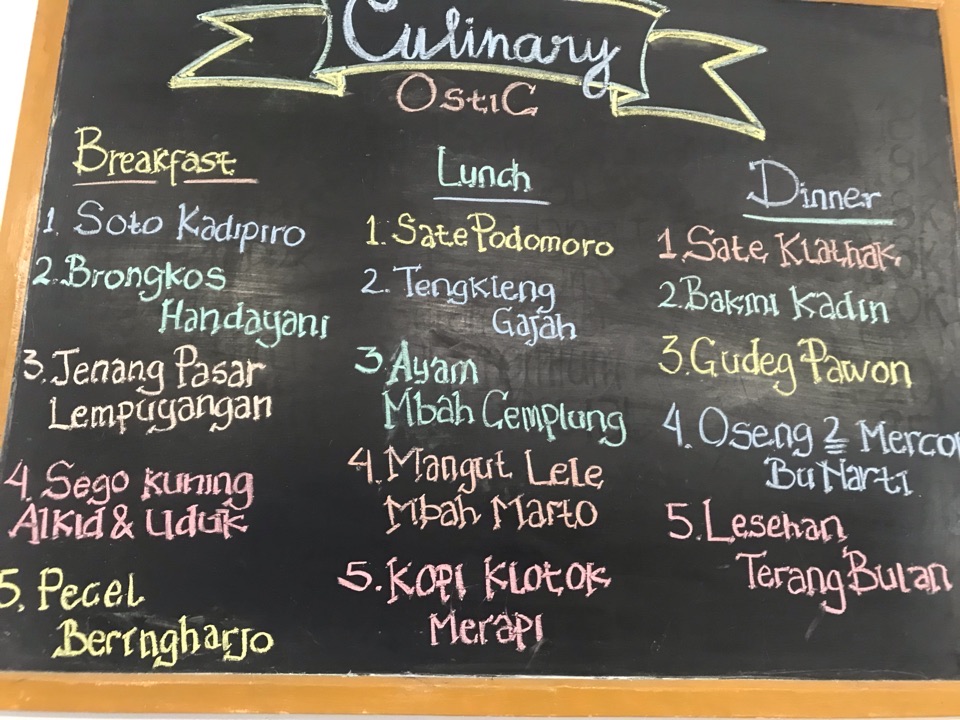 Culinary
OstiC
Breakfast
1. Soto Kadipiro
2. Brongkos
Handayani
3. Jenang Pasar
Lempuyangan
4. Sego Kuning
Alkid & Uduk
5. Pecel
Beringharjo
Lunch
1. Sate Podomoro
2. Tengkleng
Gajah
3 Ayam
Mbah Cemplung
4. Mangut Lele
Mbah Marto
5. Kopi Klotok
Merapi
Dinner
1. Sate Klathak
2. Bakmi Kadin
3. Gudeg Pawon
4. Oseng 2 Merco
Bu Narti
5. Lesehan
Terang Bulan